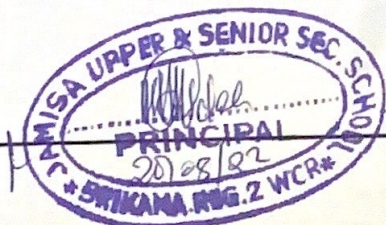 JAMISA UPPER & SENIOR SEC. SCHOOL
PRINCIPAL
20/08/22
*BRIKAMA. WCR*